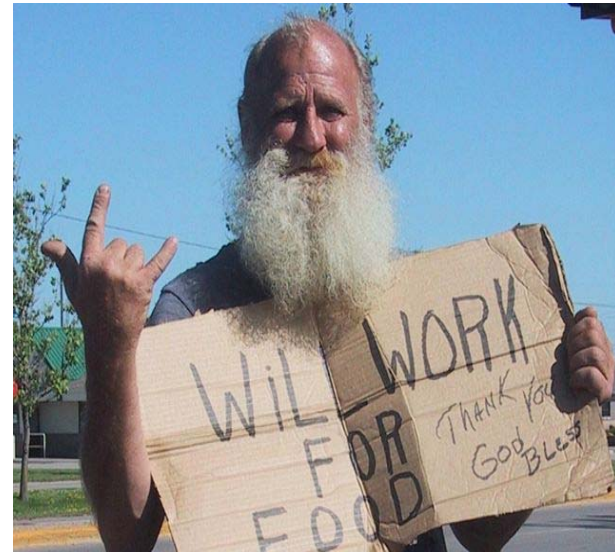 WiLL WORK
FOR
FOOD
THANK YOU
GOD BLESS